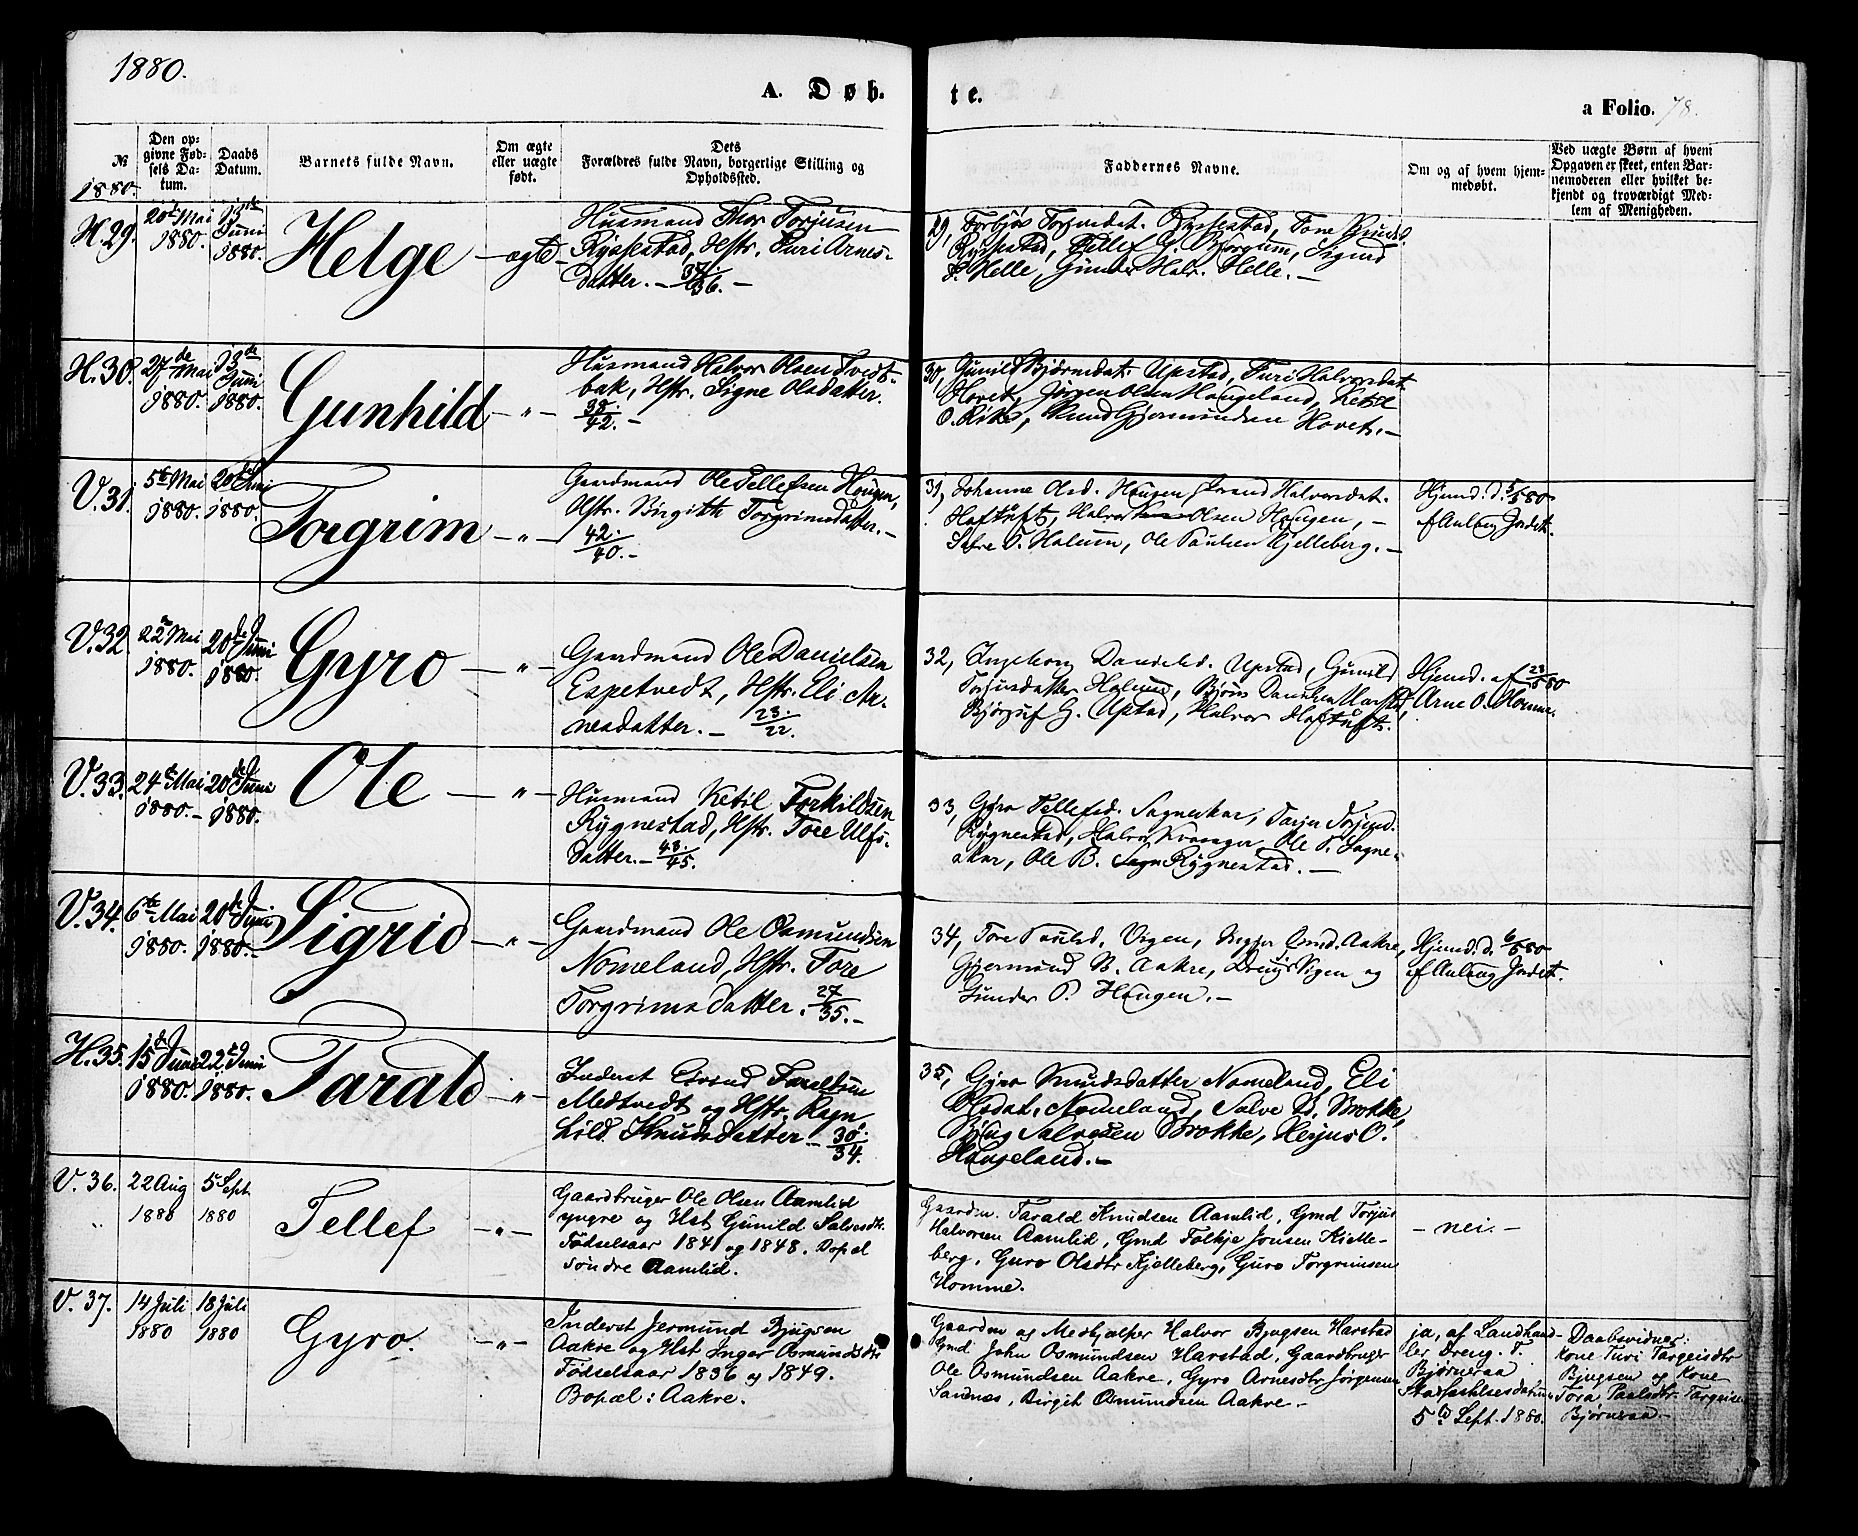 1880.
A. Døbte.
a Folio. 78.
№
Den opgivne Fødsels Datum.
Daabs Datum.
Barnets fulde Navn.
Om ægte eller uægte født.
Dets Forældres fulde Navn, borgerlige Stilling og Opholdssted.
Faddernes Navne.
Om og af hvem hjemmedøbt.
Ved uægte Børn af hvem Opgaven er skeet, enten Barnemoderen eller hvilket bekjendt og troværdigt Medlem af Menigheden.
1880.
H. 29.
20de Mai
1880.
13de
Juni
1880.
Helge
ægte
Husmand Thor Torjusen
Rysstad, Hstr. Turi Arnes-
datter. —
29,
Rysstad, Tone
Rysstad, Tellef G. Bjorgum, Sigrid
Helle, Gunder Halv. Helle. —
H. 30.
27de Mai
1880.
13de
Juni
1880.
Gunhild
— " —
Husmand Halvor Olsen Tvedt-
bak, Hstr. Signe Olsdatter.
38/42. —
30, Gunild Bjørnsdat. Upstad, Turi Halvorsdat.
Hovet, Jørgen Olsen Haugeland, Ketil
O. Rike, Knud Gjermundsen Hovet. —
V. 31.
5te Mai
1880.
20de Juni
1880.
Torgrim
— " —
Gaardmand Ole Tellefsen Hougen,
Hstr. Birgith Torgrimsdatter. —
42./40. —
31, Johanne Olsd. Hougen, Halvorsdat.
Hoftuft, Halvor Olsen Hougen, —
Halum, Ole Paulsen Kjelleberg. —
Hjemd. d. 5/5 80
af Anlaug Jordet.
V. 32.
22 Mai
1880.
20de Juni
1880.
Gyro
— " —
Gaardmand Ole Danielsen
Espetvedt, Hstr. Eli Ar-
nesdatter. — 23./22.
32, Ingeborg Danield. Upstad, Gunild
Torjusdatter Halum, Bjørn Danielsen Harstad,
Bjørguf G. Upstad, Halvor Hoftuft.
Hjemd. af 23/5 80
Arne O. Homme.
V. 33.
24de Mai
1880. —
20de Juni
1880.
Ole
— " —
Husmand Ketil Torkildsen
Rygnestad, Hstr. Tore Ulfs-
datter. — 43./45.
33, Gyro Tellefsd. Sagneskar, Tarjer
Rygnestad, Halvor Ole P. Sagne-
skar, Ole B. Rygnestad. —
V. 34.
6te Mai
1880.
20de Juni
1880. —
Sigrid
— " —
Gaardmand Ole Osmundsen
Nomeland, Hstr. Tore
Torgrimsdatter. 27/35. —
34, Tore Paulsd. Vigen, Osmd. Aakre,
Gjermund B. Aakre, Dreng Vigen og
Gunder P. Hougen. —
Hjemd. d. 6/5 80
af Anlaug Jordet.
H. 35.
15de Juni
1880.
22de Juni
1880.
Tarald
— " —
Inderst Eivind Taraldsen
Medtvedt og Hstr. Ragn-
hild Knudsdatter — 30./34.
35, Gyro Knudsdatter Nomeland, Eli
Olsdat. Nomeland, Salve Brokke,
Bjug Salvesen Brokke, O.
Haugeland. —
V. 36.
22 Aug
1880
5 Sept
1880
Tellef
— " —
Gaardbruger Ole Olsen Aamlid
yngre og Hst Gunild Salvesdtr.
Fødselsaar 1841 og 1848. Bopæl
søndre Aamlid.
Gaardm. Tarald Knudsen Aamlid, Gmd Torjus
Halvorsen Aamlid, Gmd Folkje Jonsen Kjelle-
berg, Guro Olsdtr Kjelleberg, Guro Torgrimsen
Homme.
— nei. —
V. 37.
14 Juli
1880
18 Juli
1880
Gyro.
— " —
Inderst Jermund Bjugsen
Aakre og Hst Inger Osmundsdtr
Fødselsaar 1836 og 1849.
Bopæl: Aakre.
Gaardm og Medhjælper Halvor Bjugsen Harstad
Gmd John Osmundsen Harstad, Gaardbruger
Ole Osmundsen Aakre, Gyro Arnesdtr Jørgensen
Sandnes, Birgit Osmundsen Aakre —
ja, af Landhand-
ler Dreng T.
Bjørneraa
Stadfæstelsesdatum
5te Sept. 1880.
Daabsvidner:
Kone Turi Targeisdtr
Bjugsen og Kone
Tora Paalsdtr Targeisen
Bjørneraa. —